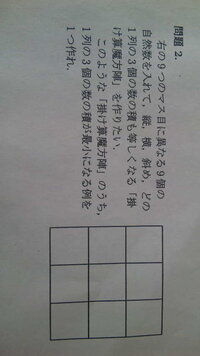 問題 2.
右の9つのマス目に異なる9個の
自然数を入れて，縦，横，斜め，どの
1列の3個の数の積も等しくなる「掛
け算魔方陣」を作りたい．
このような「掛け算魔方陣」のうち，
1列の3個の数の積が最小になる例を
1つ作れ．